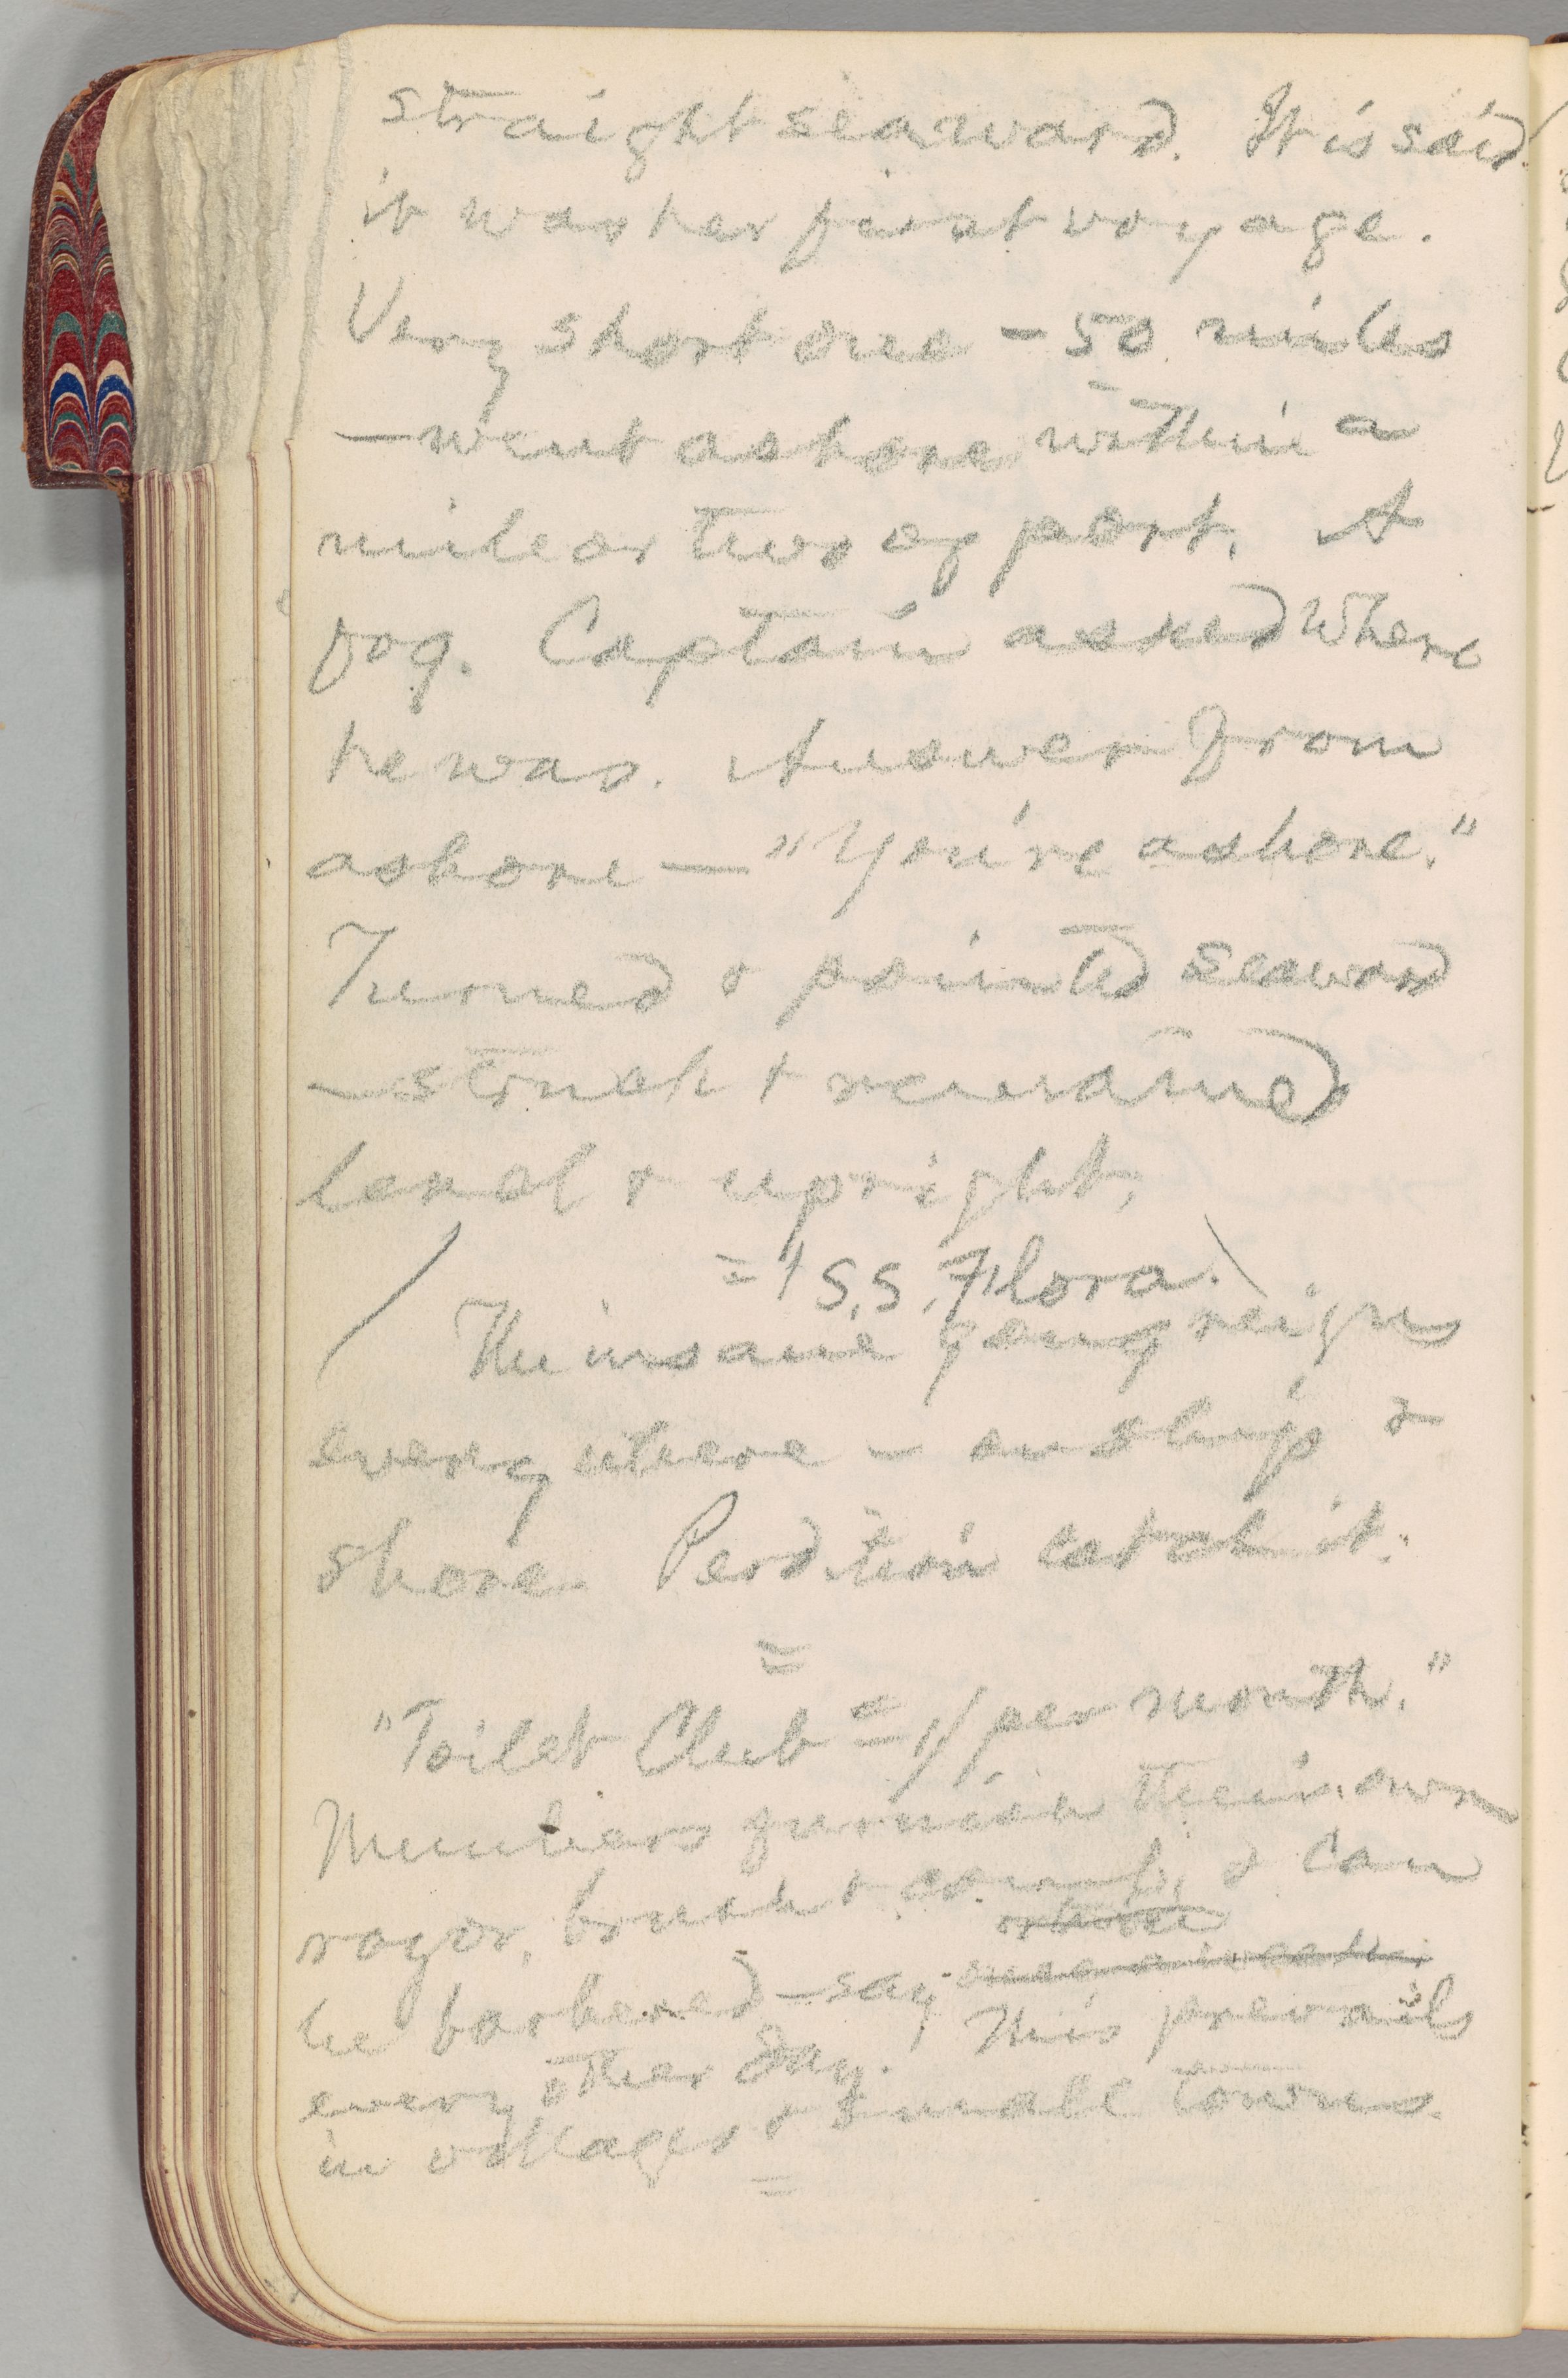 straight seaward. It is said
it was her first voyage.
Very short one — 50 miles
— went ashore within a
mile or two of port. A
fog. Captain asked where
he was. Answer from
ashore — "You're ashore."
Turned & pointed seaward
— struck & remained
level & upright.
= (S.S. Flora.)
The insane gong reigns
everywhere — on ship &
shore. Perdition catch it.
=
"Toilet Club = 1/ per month."
Members furnish their own
razor, brush & comb, & can
be barbered — say once a week
every other day. This prevails
in villages & small towns.
=